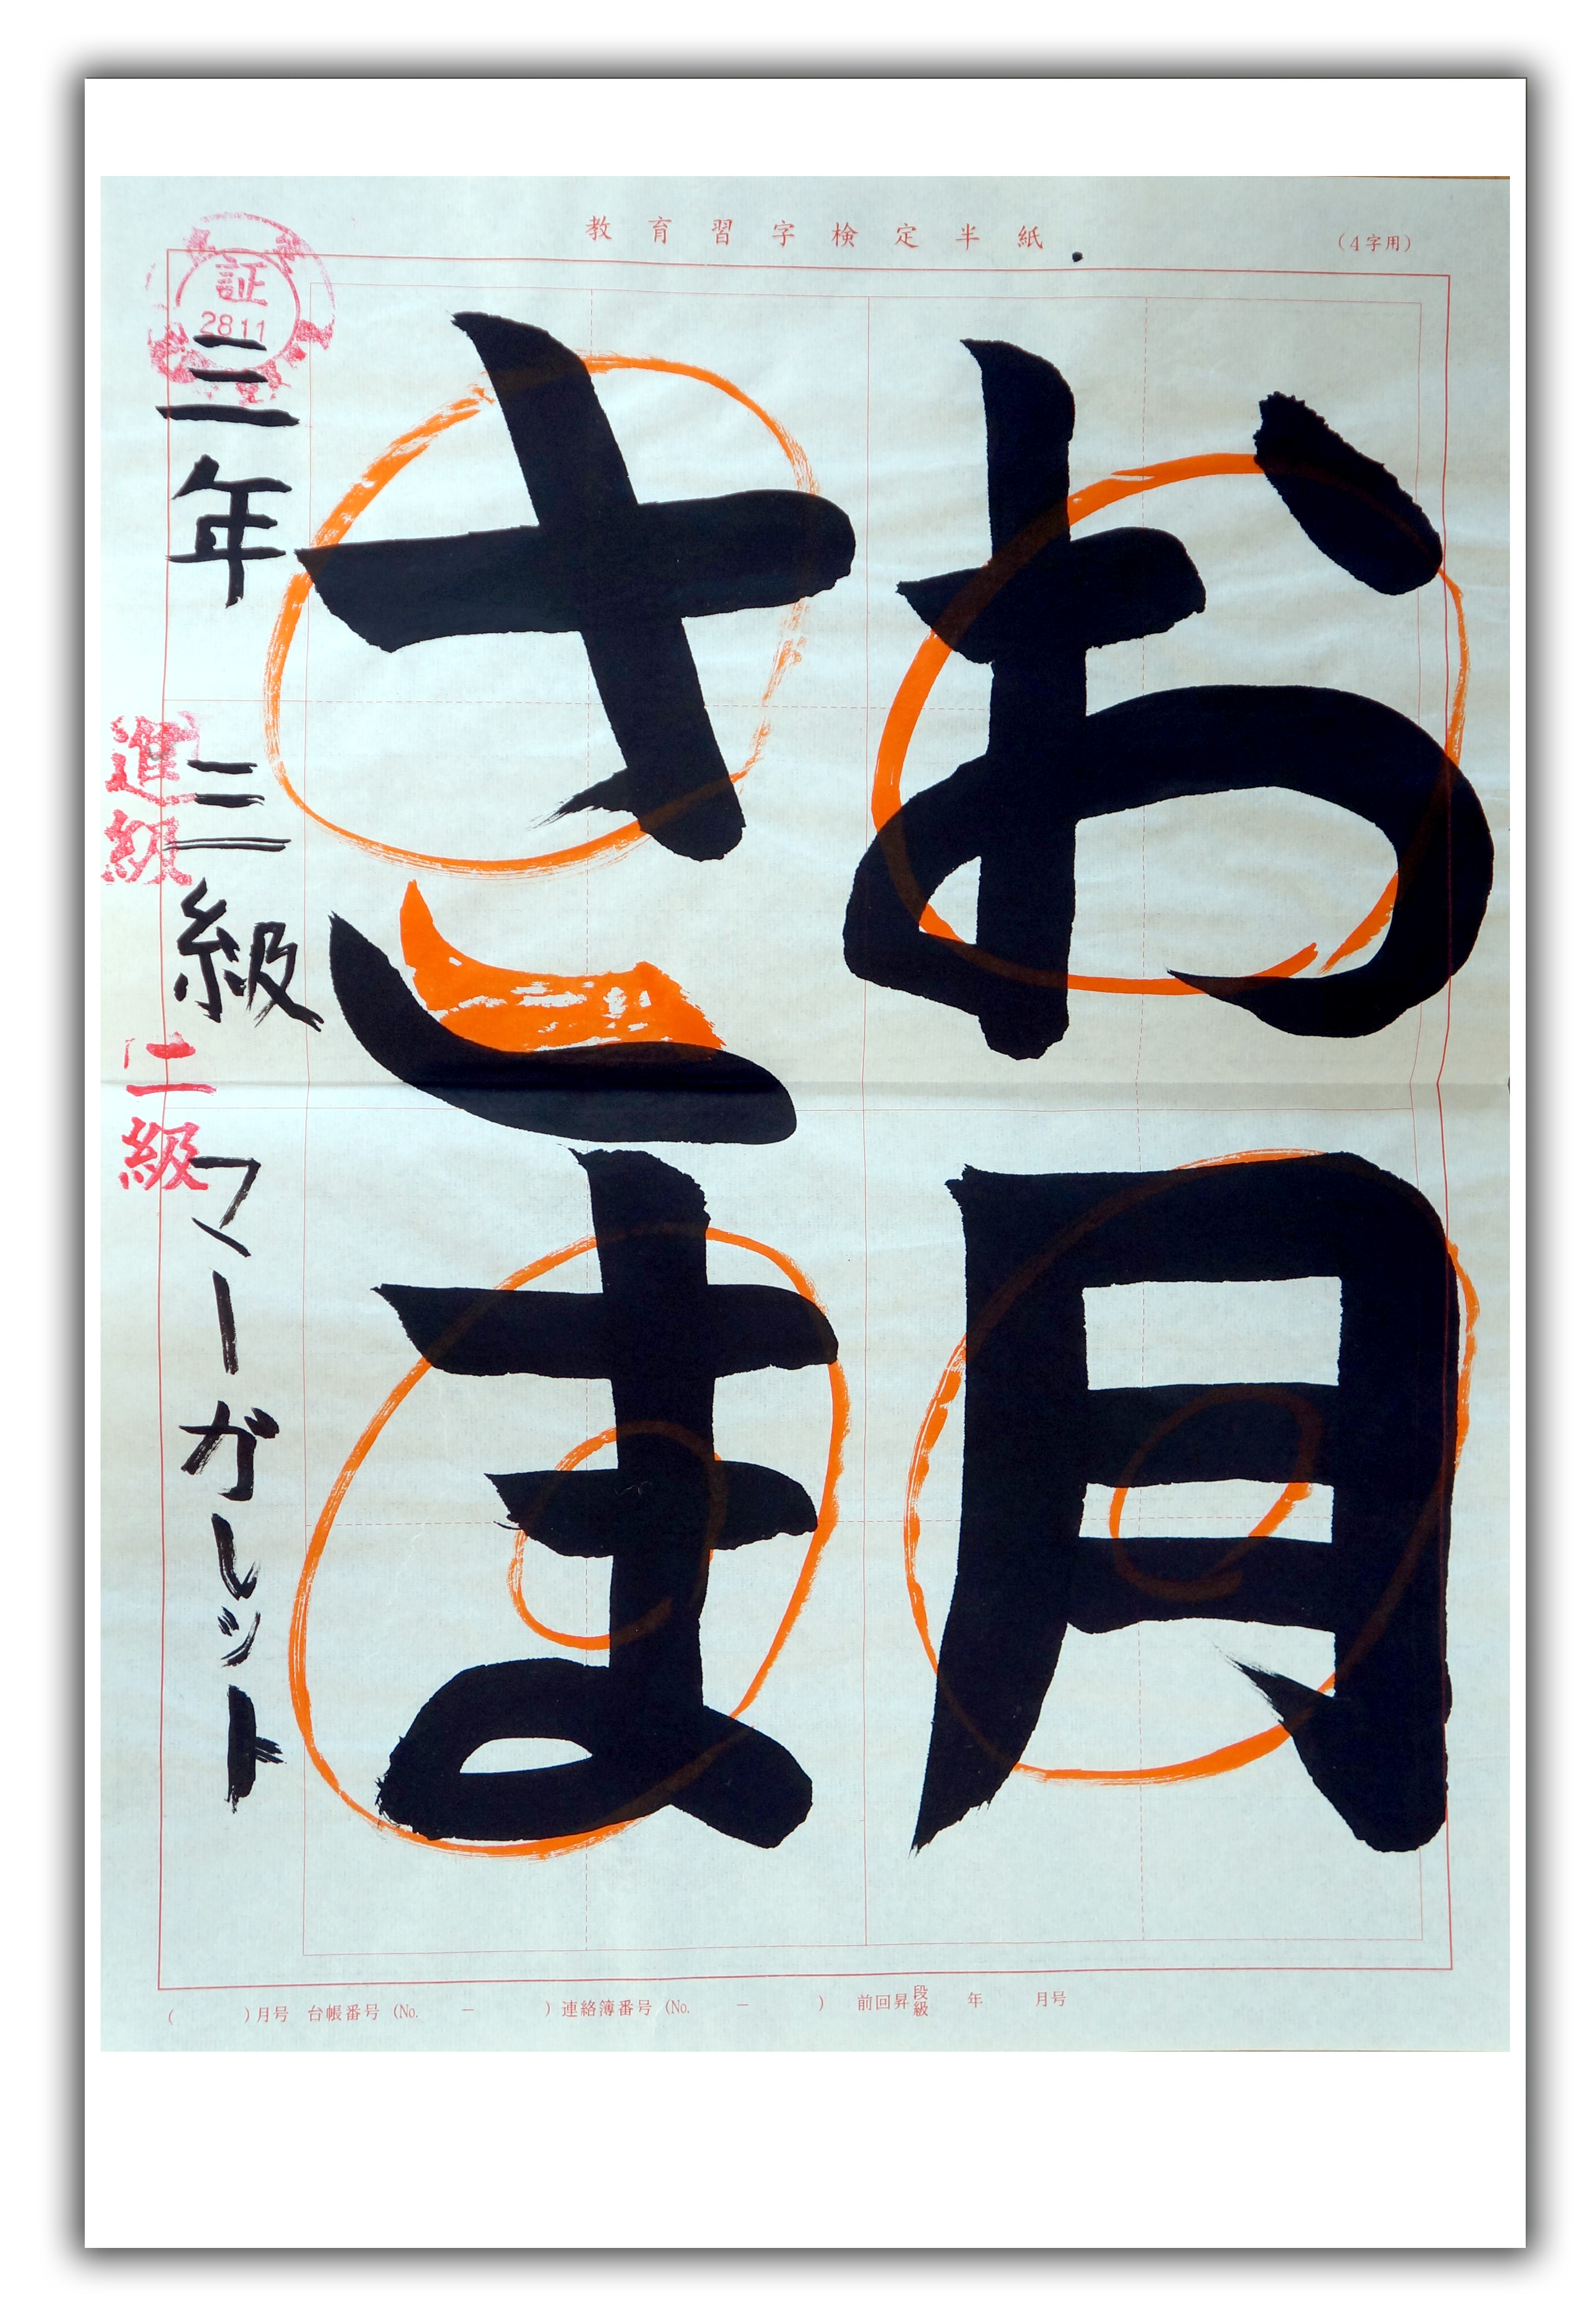 教育習字検定半紙
(4字用)
お月
さま
三年 三級 マーガレット
証
2811
進級
二級
( )月号 台帳番号 (No. － ) 連絡簿番号 (No. － ) 前回昇段級 年 月号